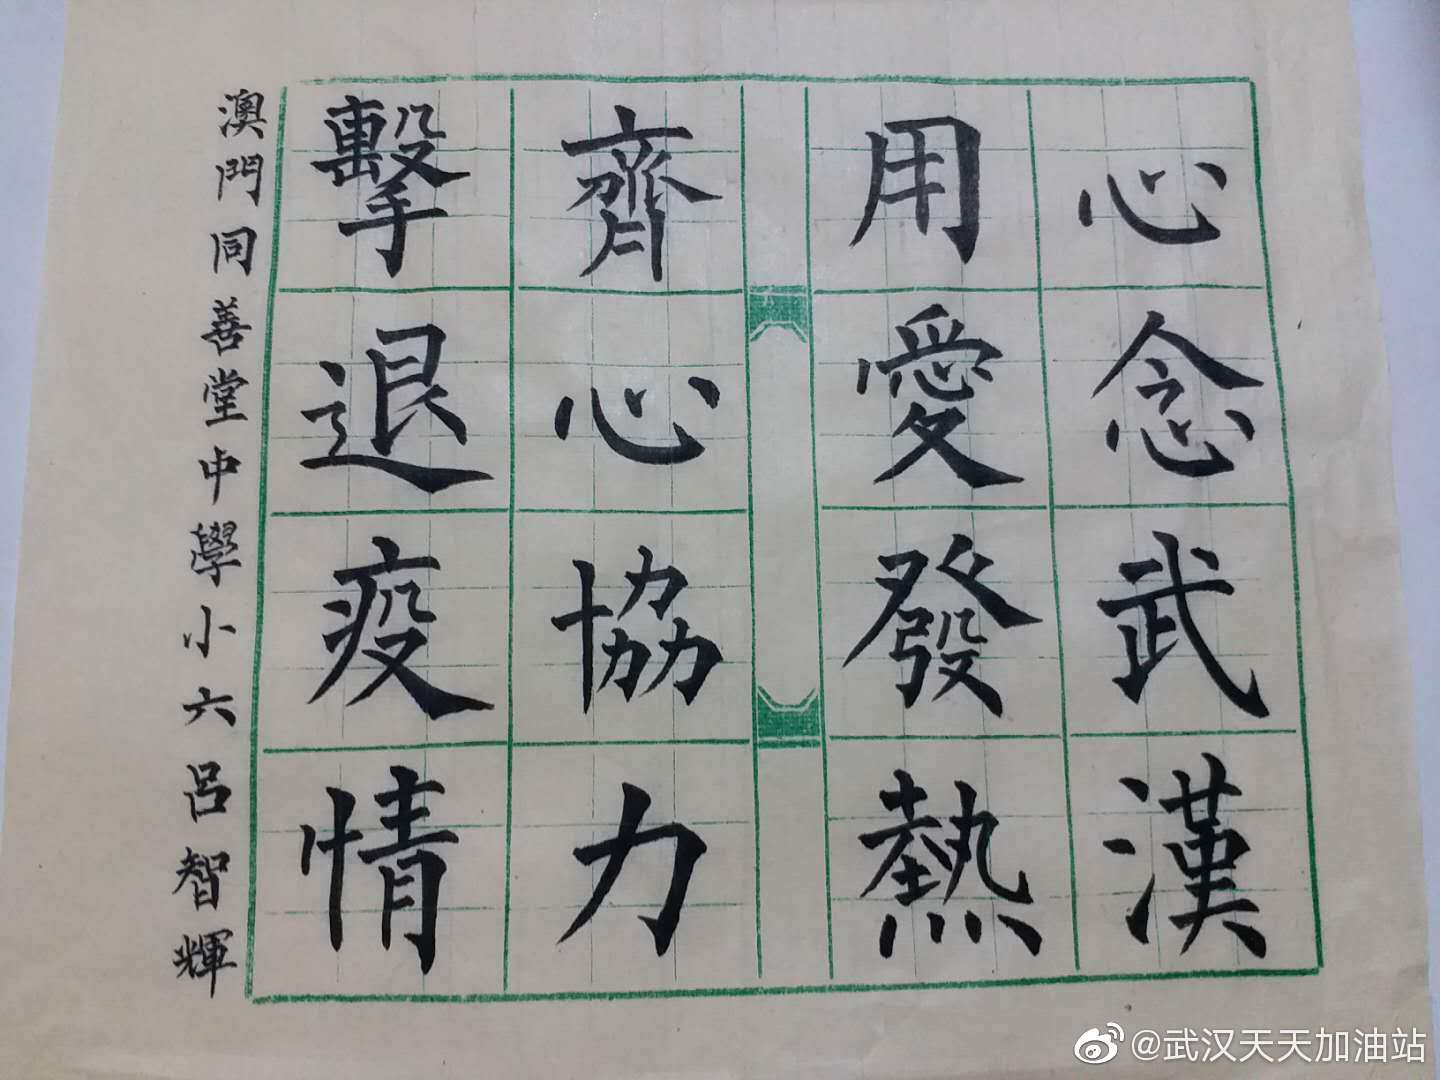 心念武漢
用愛發熱
齊心協力
擊退疫情
澳門同善堂中學小六呂智輝
@武汉天天加油站